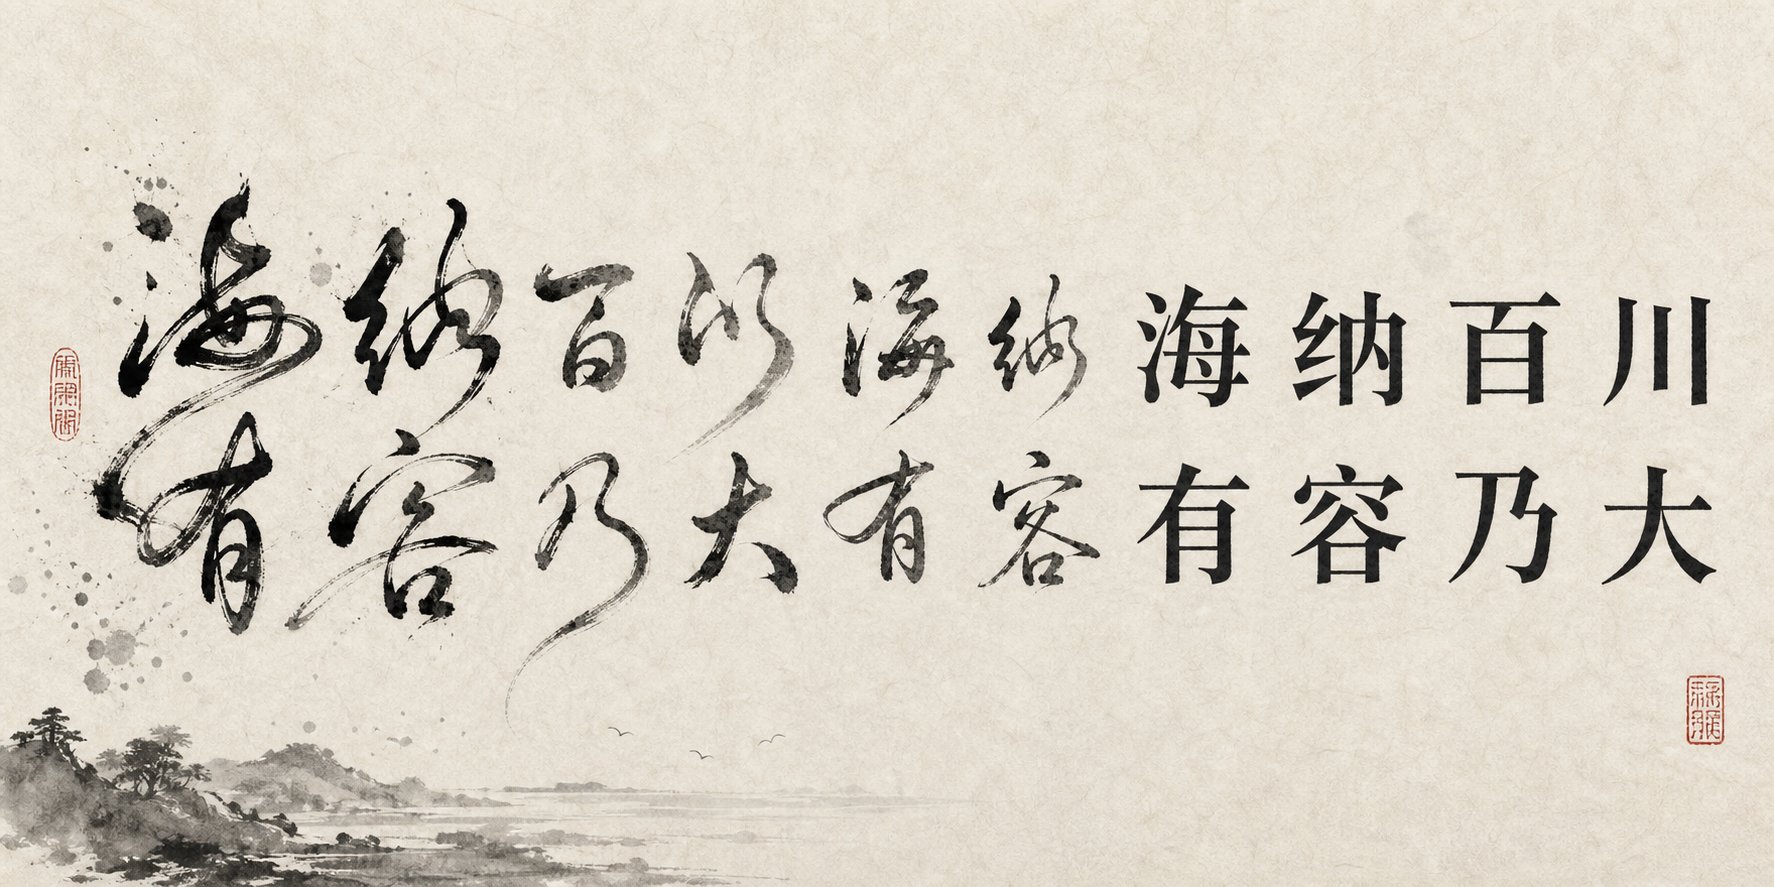 海纳百川海纳海纳百川
有容乃大有容有容乃大